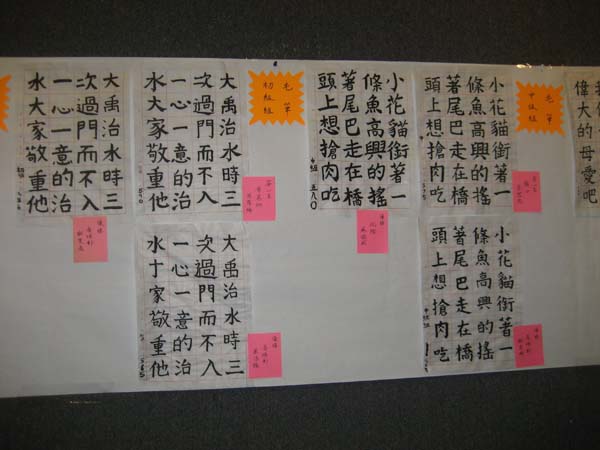 偉大的母愛吧
毛筆
中級組
小花貓銜著一
條魚高興的搖
著尾巴走在橋
頭上想搶肉吃
小花貓銜著一
條魚高興的搖
著尾巴走在橋
頭上想搶肉吃
小花貓銜著一
條魚高興的搖
著尾巴走在橋
頭上想搶肉吃
毛筆
初級組
大禹治水時三
次過門而不入
一心一意的治
水大家敬重他
大禹治水時三
次過門而不入
一心一意的治
水十家敬重他
大禹治水時三
次過門而不入
一心一意的治
水大家敬重他